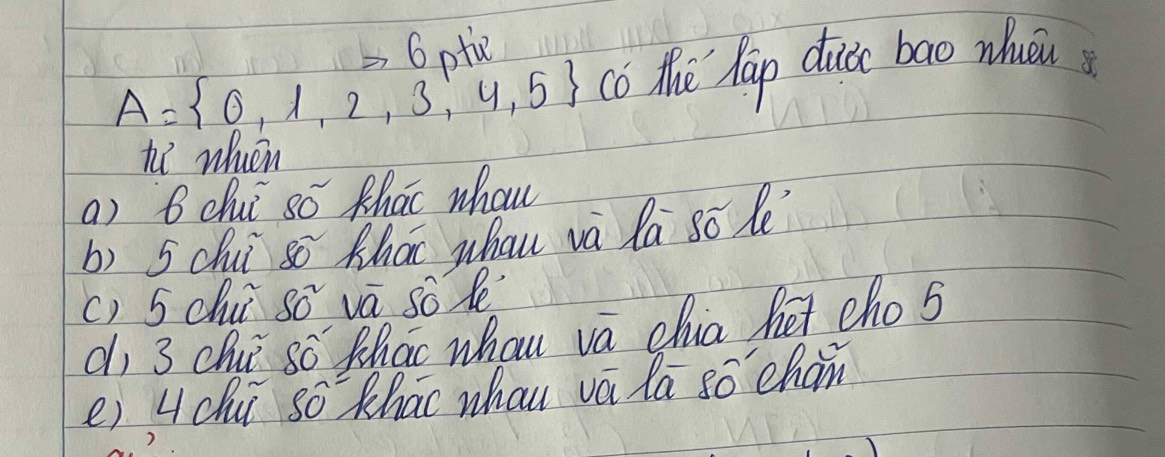 → 6 ptử
A = {0, 1, 2, 3, 4, 5} có thể lập được bao nhiêu số
tự nhiên
a) 6 chữ số khác nhau
b) 5 chữ số khác nhau và là số lẻ
c) 5 chữ số và số lẻ
d) 3 chữ số khác nhau và chia hết cho 5
e) 4 chữ số khác nhau và là số chẵn